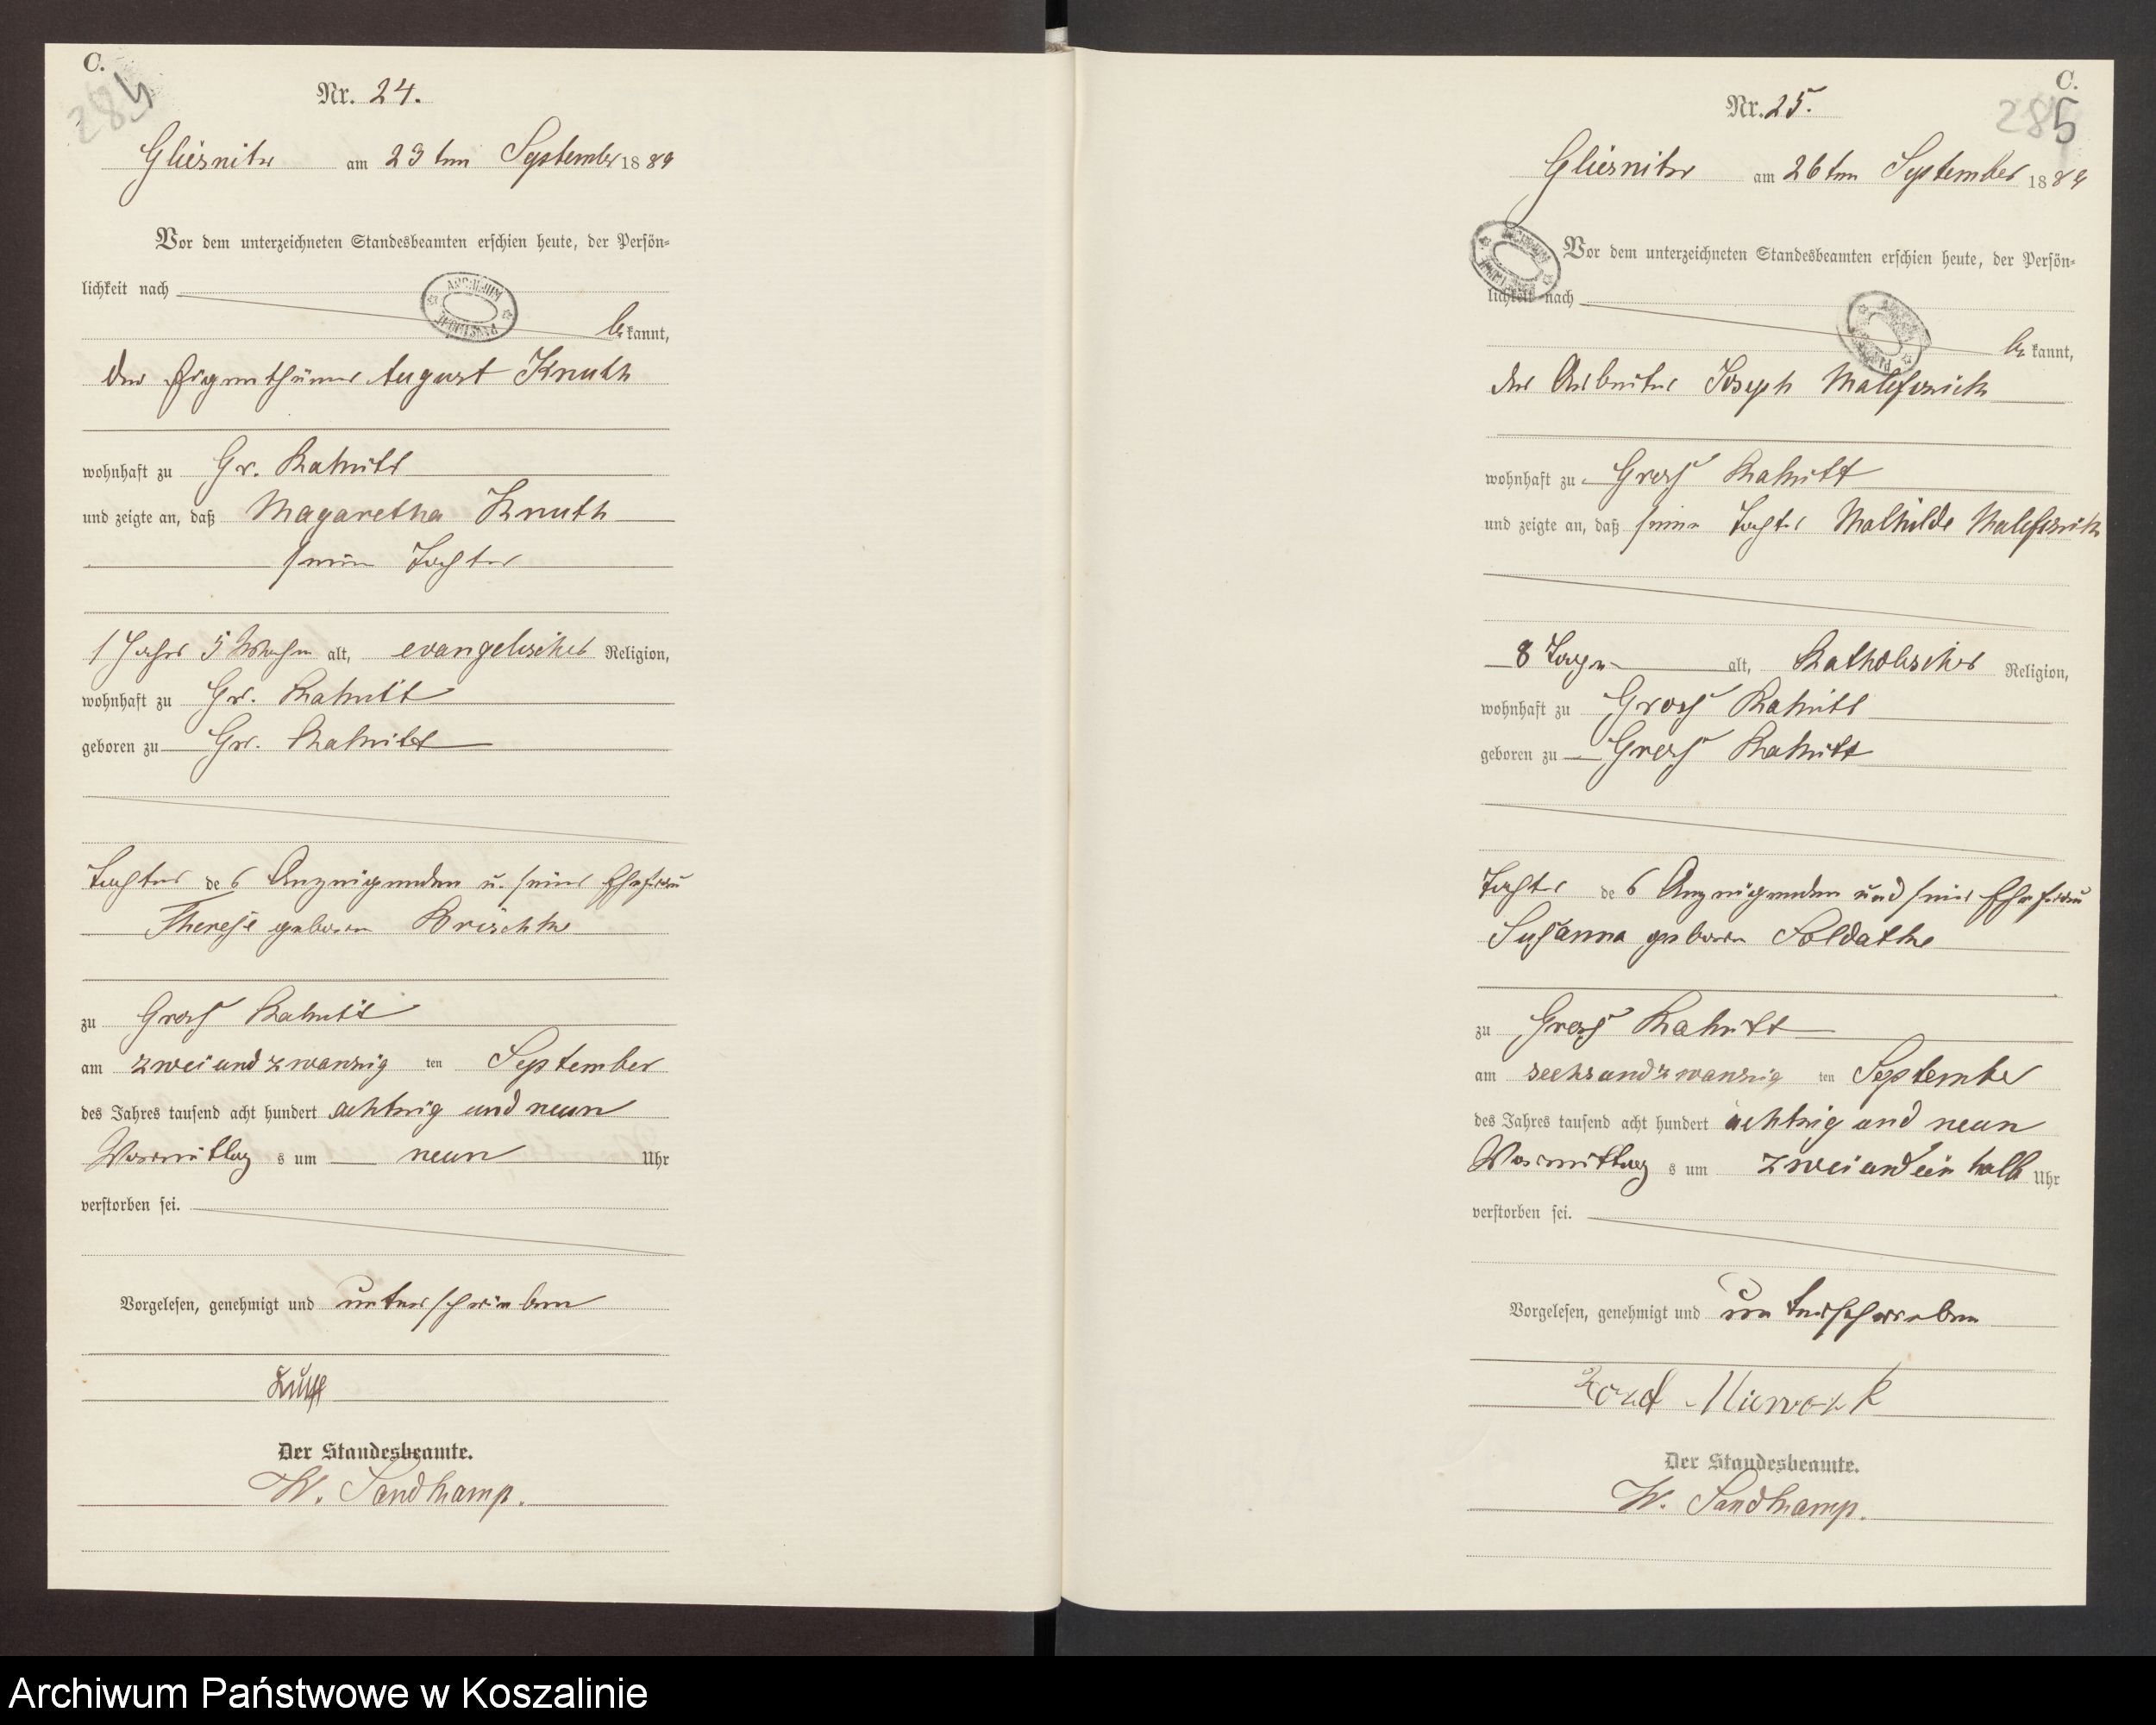 C.
284
Nr. 24.
Gliesnitz am 23ten September 1889
Vor dem unterzeichneten Standesbeamten erschien heute, der Persön-
lichkeit nach
bekannt,
der Eigenthümer August Knuth
wohnhaft zu Gr. Rakitt
und zeigte an, daß Magaretha Knuth
seine Tochter
1 Jahr 5 Wochen alt, evangelischer Religion,
wohnhaft zu Gr. Rakitt
geboren zu Gr. Rakitt
Tochter des Anzeigenden u. seiner Ehefrau
Therese geboren Krischke
zu Gross Rakitt
am zweiundzwanzig ten September
des Jahres tausend acht hundert achtzig und neun
Vormittag s um neun Uhr
verstorben sei.
Vorgelesen, genehmigt und unterschrieben
Der Standesbeamte.
W. Sandkamp.
C.
285
Nr. 25.
Gliesnitz am 26ten September 1889
Vor dem unterzeichneten Standesbeamten erschien heute, der Persön-
lichkeit nach
bekannt,
der Arbeiter Joseph
wohnhaft zu Gross Rakitt
und zeigte an, daß seine Tochter Mathilde
8 Tage alt, Katholischer Religion,
wohnhaft zu Gross Rakitt
geboren zu Gross Rakitt
Tochter des Anzeigenden und seiner Ehefrau
Susanna geboren Soldatke
zu Gross Rakitt
am sechsundzwanzig ten September
des Jahres tausend acht hundert achtzig und neun
Vormittag s um zwei und ein halb Uhr
verstorben sei.
Vorgelesen, genehmigt und unterschrieben
Der Standesbeamte.
W. Sandkamp.
Archiwum Państwowe w Koszalinie